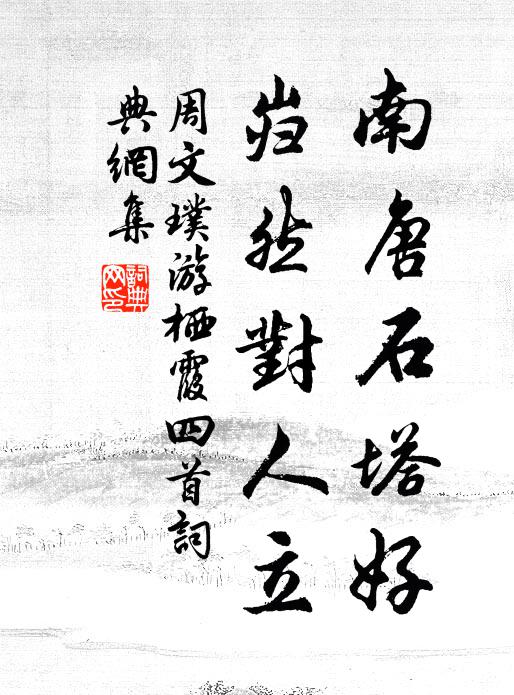 南唐石塔好
岿然對人立
周文璞游栖霞四首詞
典網集
詞典网印